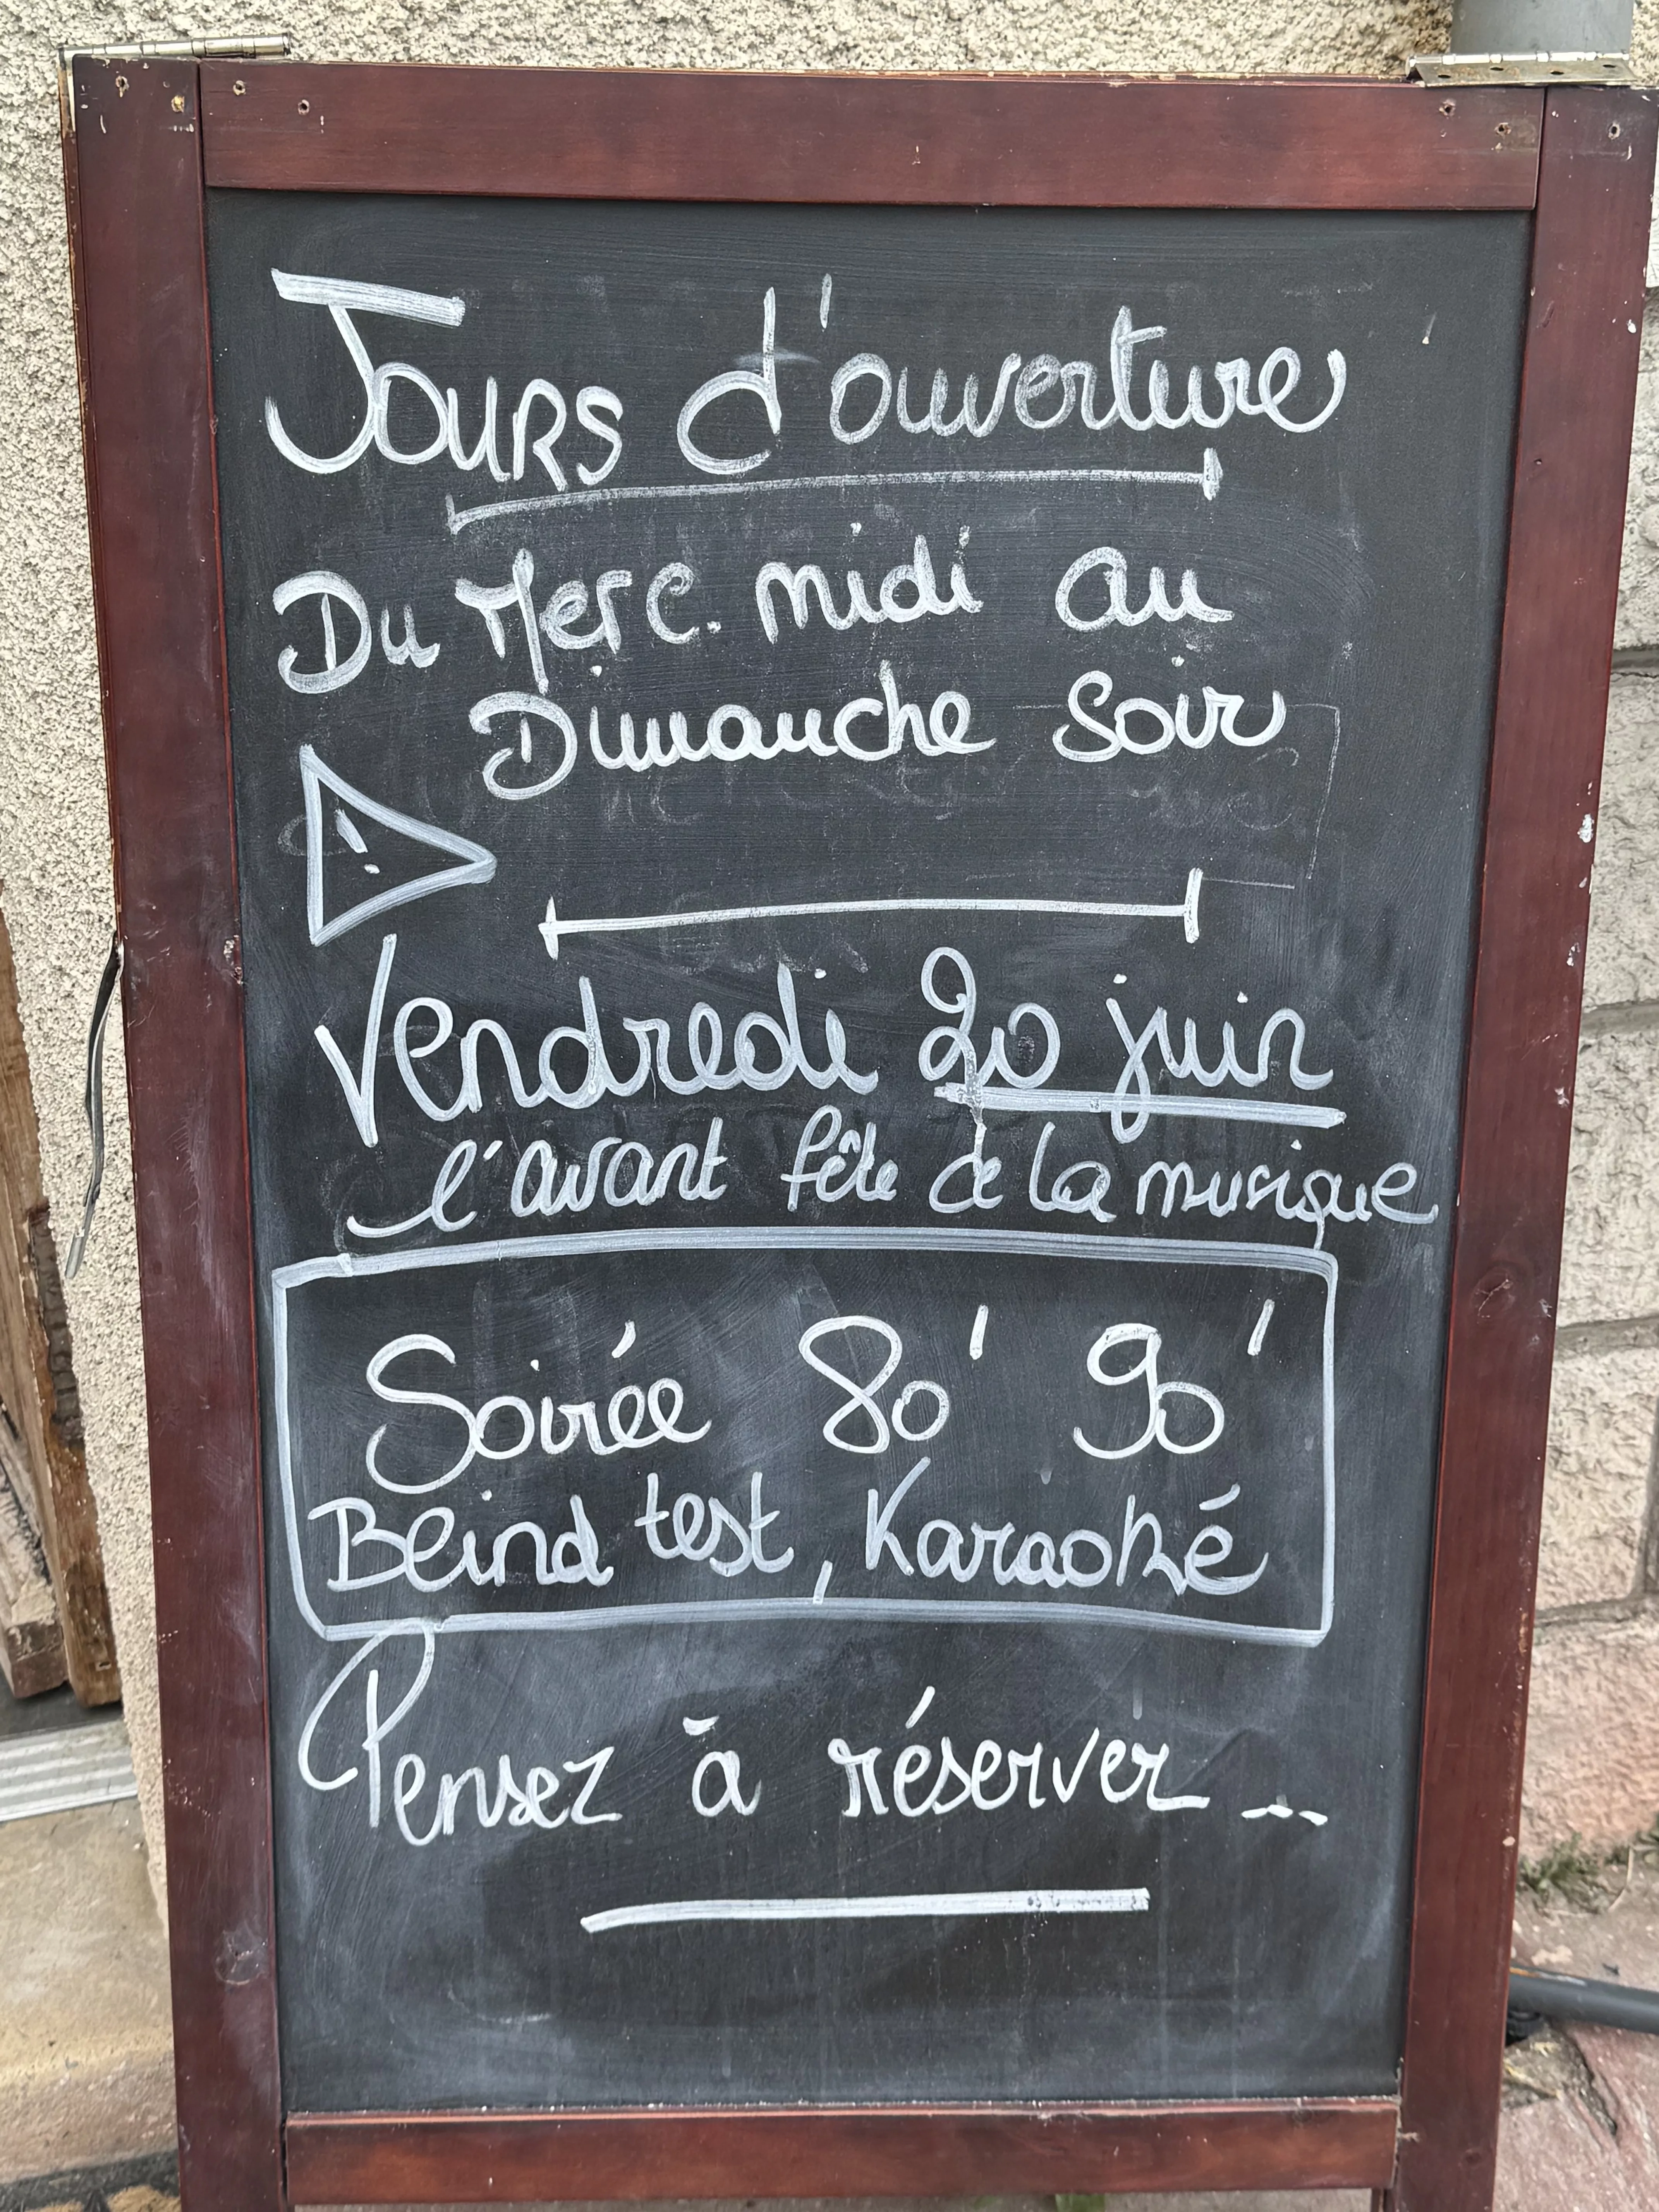 Jours d'ouverture
Du Merc. midi au
Dimanche Soir
!
Vendredi 20 juin
l'avant fête de la musique
Soirée 80' 90'
Blind test, Karaoké
Pensez à réserver...